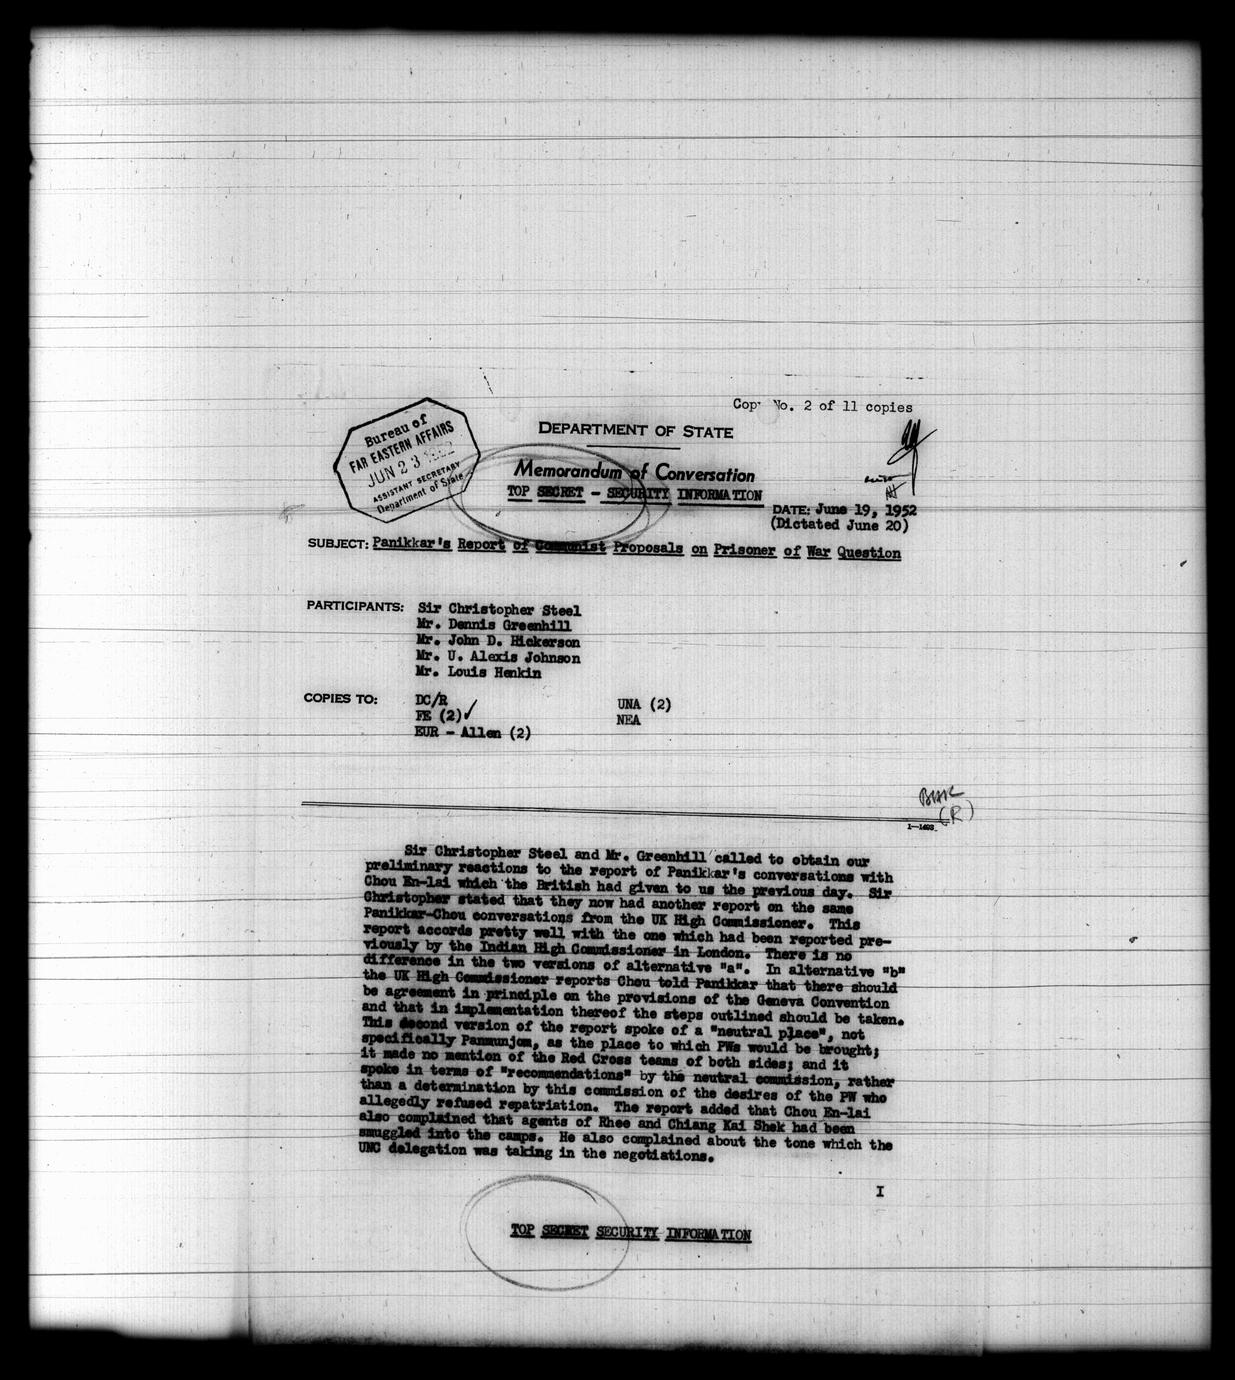 Copy No. 2 of 11 copies
Bureau of
FAR EASTERN AFFAIRS
JUN 23 1952
ASSISTANT SECRETARY
Department of State
DEPARTMENT OF STATE
Memorandum of Conversation
TOP SECRET - SECURITY INFORMATION
DATE: June 19, 1952
(Dictated June 20)
SUBJECT: Panikkar's Report of Communist Proposals on Prisoner of War Question
PARTICIPANTS: Sir Christopher Steel
Mr. Dennis Greenhill
Mr. John D. Hickerson
Mr. U. Alexis Johnson
Mr. Louis Henkin
COPIES TO: DC/R UNA (2)
FE (2)✓ NEA
EUR - Allen (2)
(R)
1-1493
Sir Christopher Steel and Mr. Greenhill called to obtain our
preliminary reactions to the report of Panikkar's conversations with
Chou En-lai which the British had given to us the previous day. Sir
Christopher stated that they now had another report on the same
Panikkar-Chou conversations from the UK High Commissioner. This
report accords pretty well with the one which had been reported pre-
viously by the Indian High Commissioner in London. There is no
difference in the two versions of alternative "a". In alternative "b"
the UK High Commissioner reports Chou told Panikkar that there should
be agreement in principle on the provisions of the Geneva Convention
and that in implementation thereof the steps outlined should be taken.
This second version of the report spoke of a "neutral place", not
specifically Panmunjom, as the place to which PWs would be brought;
it made no mention of the Red Cross teams of both sides; and it
spoke in terms of "recommendations" by the neutral commission, rather
than a determination by this commission of the desires of the PW who
allegedly refused repatriation. The report added that Chou En-lai
also complained that agents of Rhee and Chiang Kai Shek had been
smuggled into the camps. He also complained about the tone which the
UNC delegation was taking in the negotiations.
I
TOP SECRET SECURITY INFORMATION